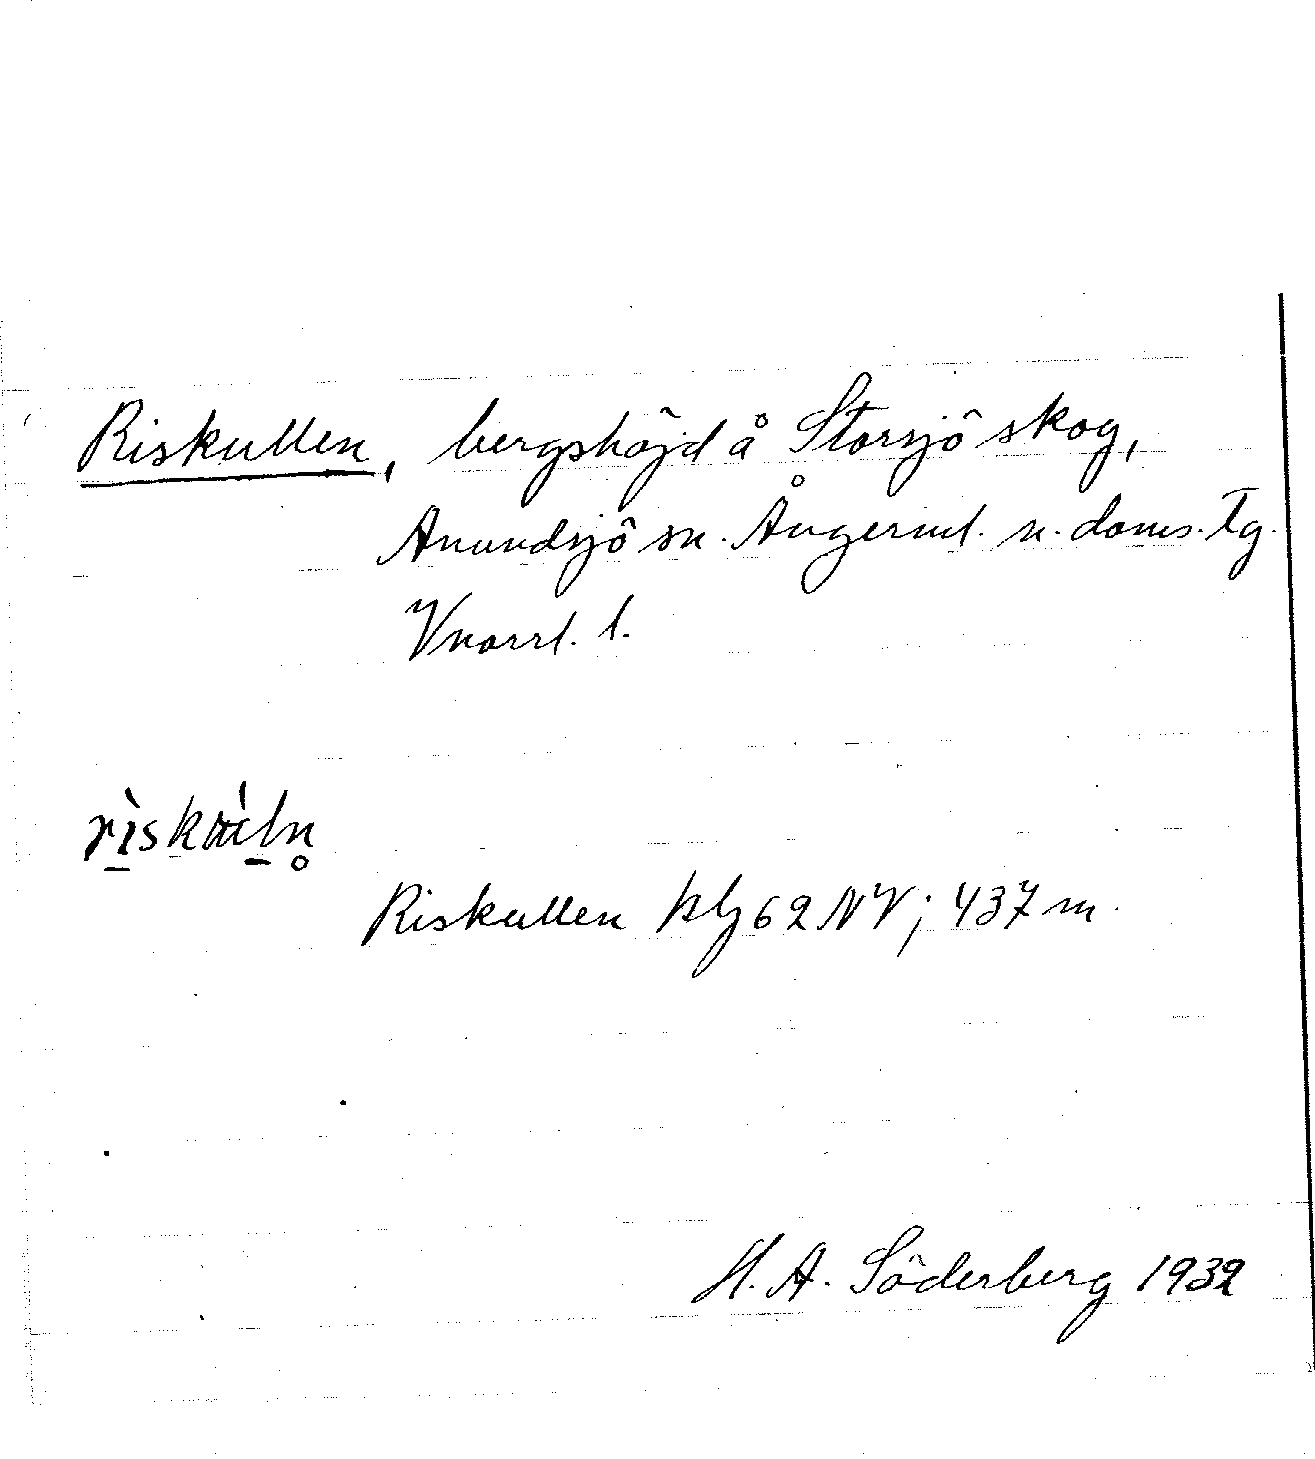 Riskullen, bergshöjd å Storsjö skog,
Anundsjö sn. Ångerml. n. doms. Tg.
Vnorrl. l.
Riskullen blj 62 NV; 437 m.
H. A. Söderberg 1932